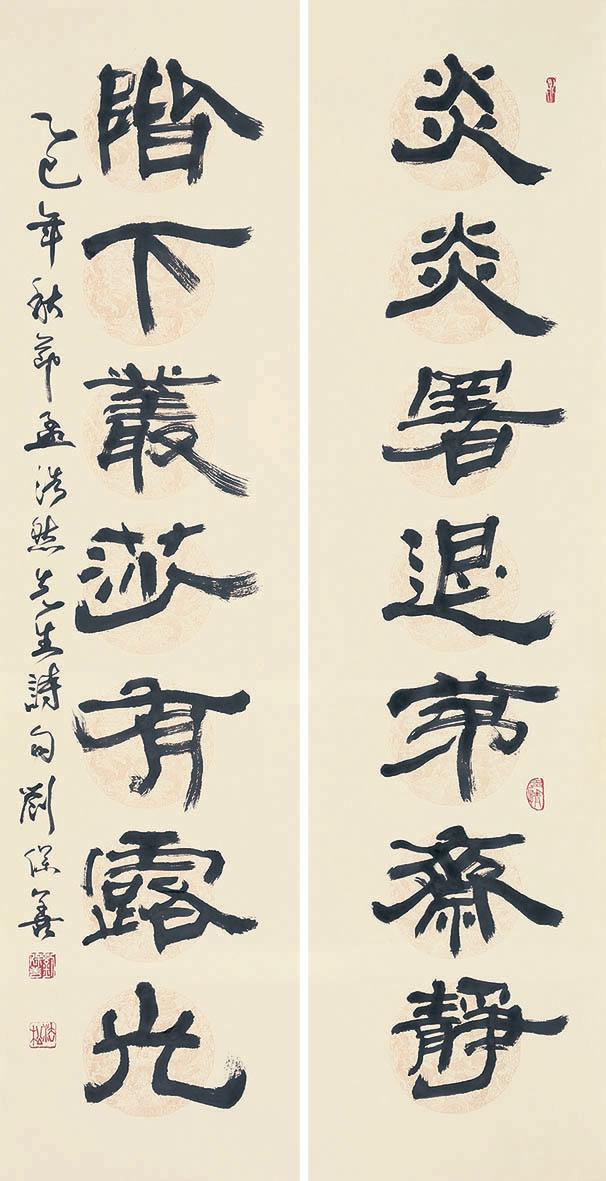 炎炎署退茅齋靜
階下叢莎有露光
乙巳年秋節孟浩然先生詩句劉保善